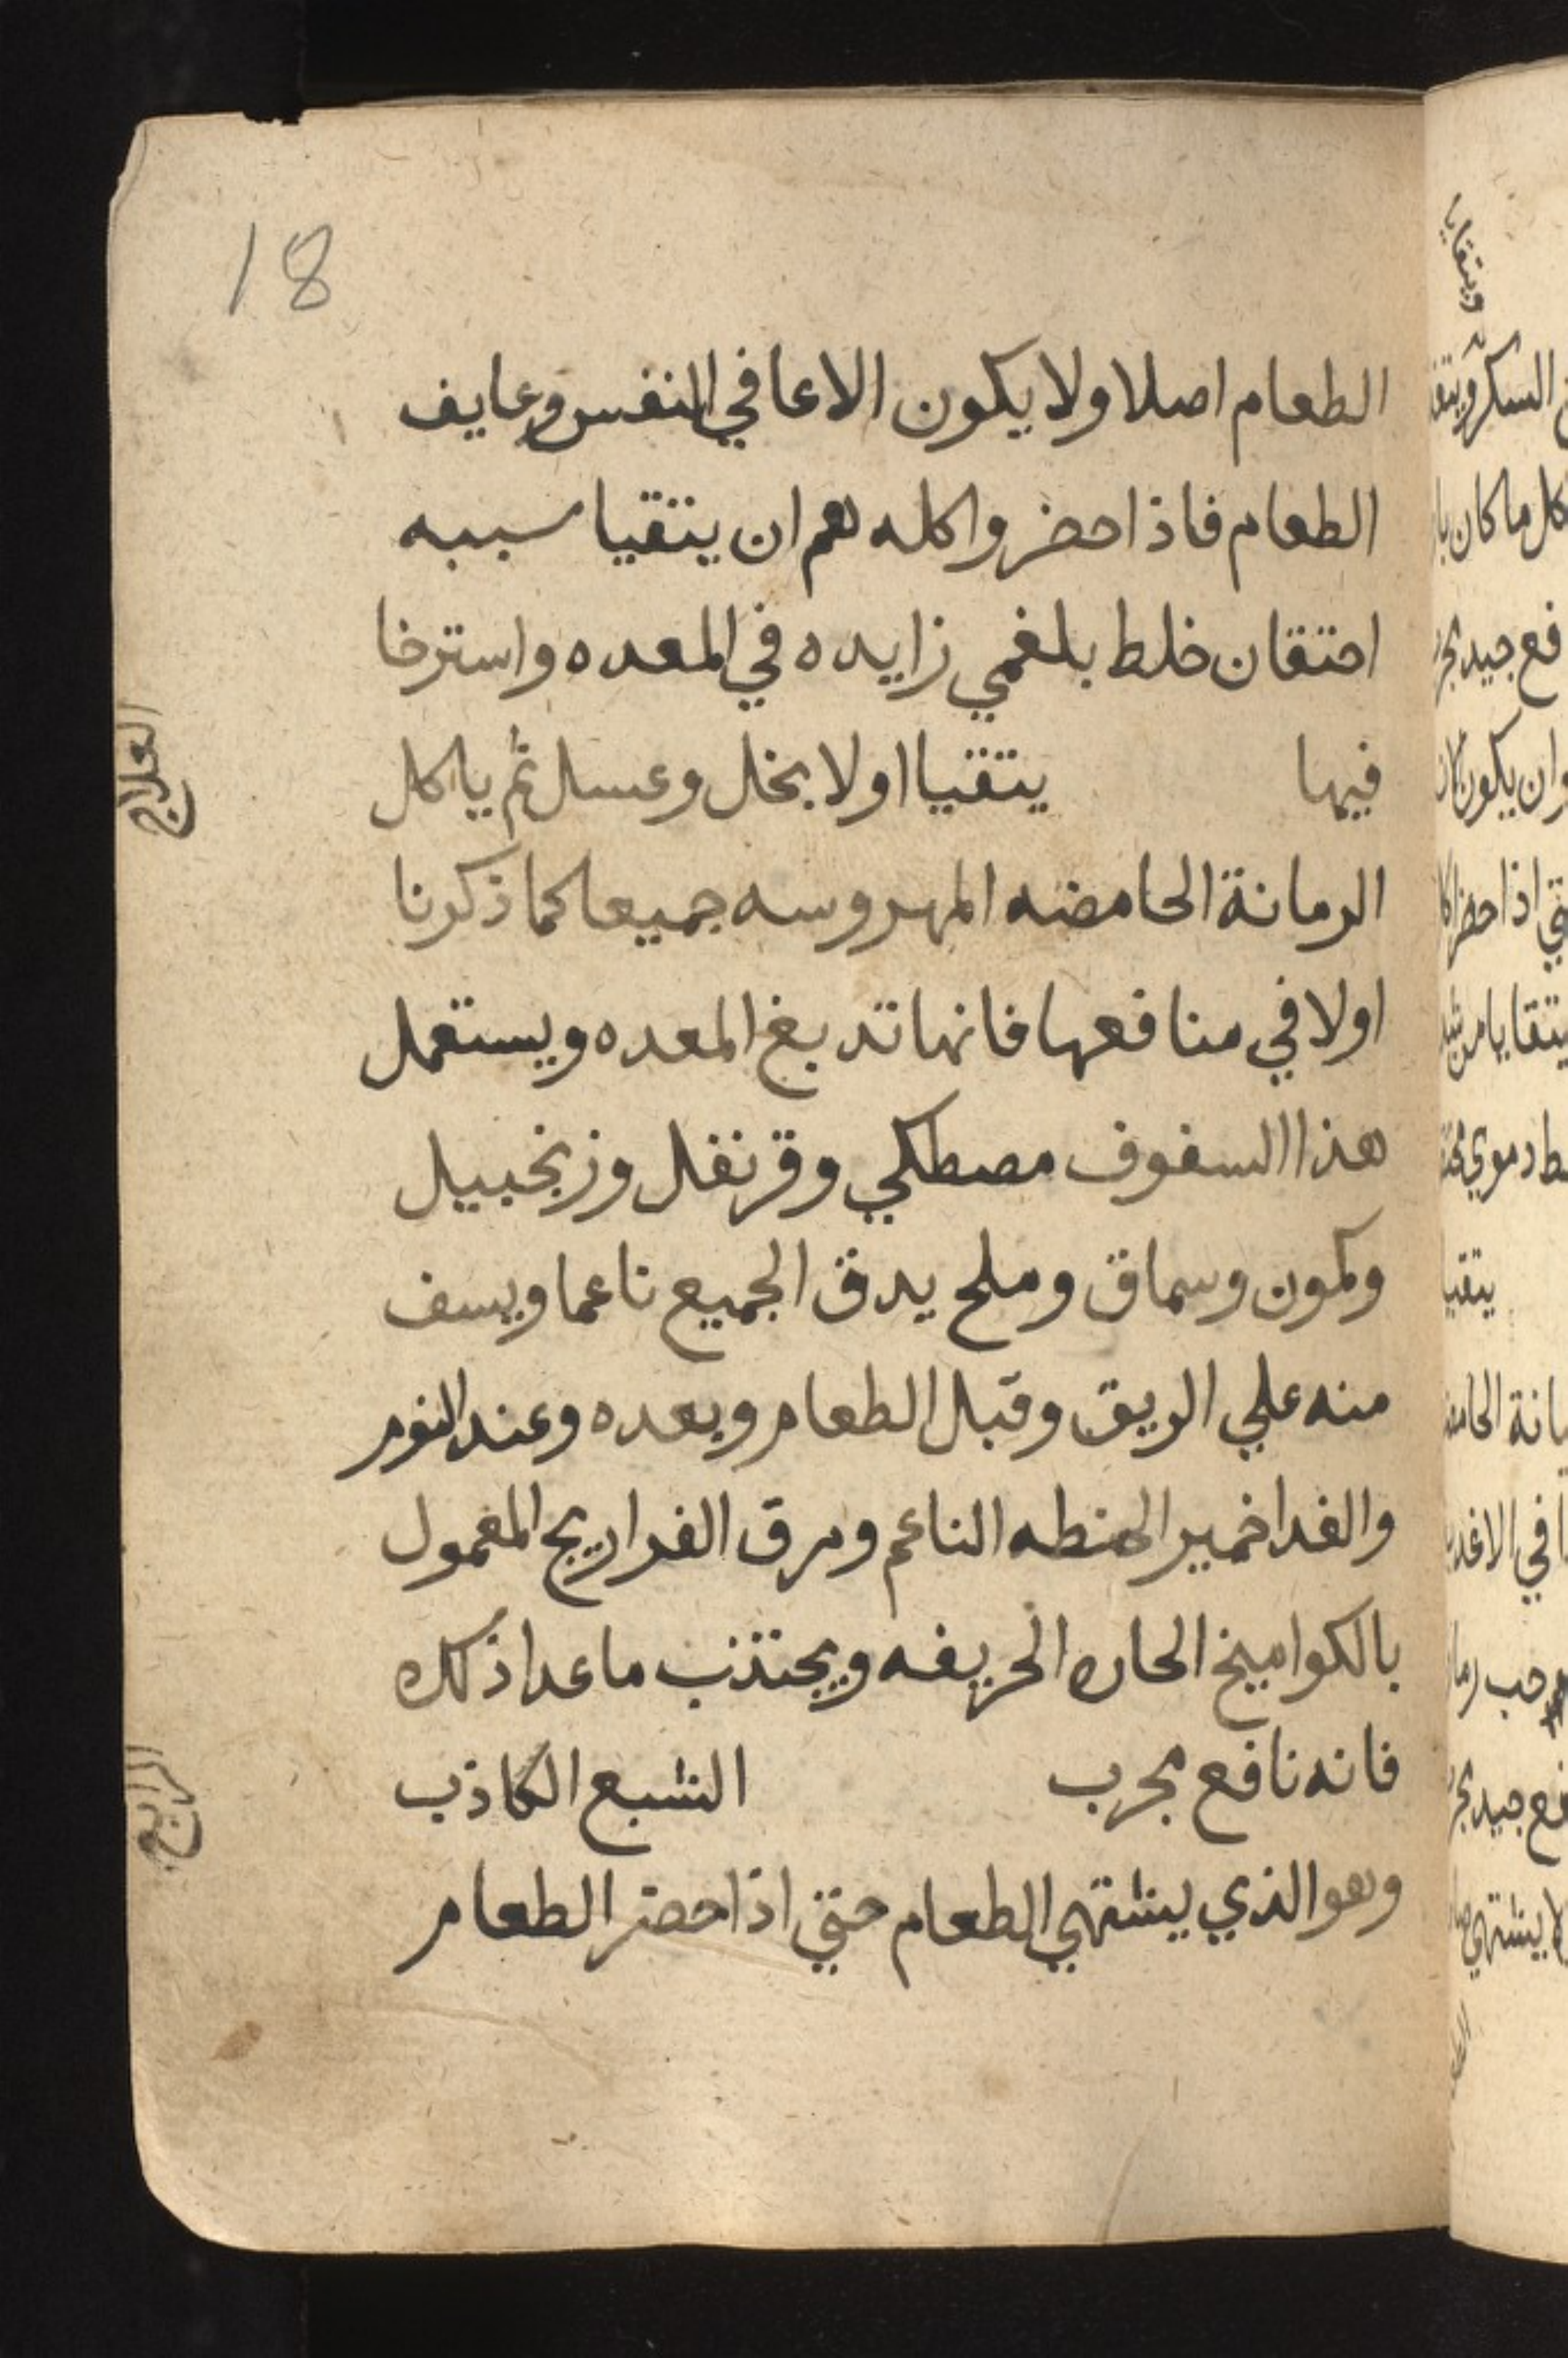 18
الطعام اصلا ولا يكون الاعافي النفس وعايف
الطعام فاذا حضر واكله هم ان يتقيا سببه
احتقان خلط بلغمي زايده في المعده واسترخا
فيها يتقيا اولا بخل وعسل ثم ياكل
العلاج
الرمانة الحامضه المهروسه جميعا كما ذكرنا
اولا في منافعها فانها تدبغ المعده ويستعمل
هذا السفوف مصطكي وقرنفل وزنجبيل
وكمون وسماق وملح يدق الجميع ناعما ويسف
منه علي الريق وقبل الطعام وبعده وعند النوم
والغدا خمير الحنطه الناعم ومرق الفراريج المعمول
بالكواميخ الحاره الحريفه ويجتنب ما عدا ذلك
فانه نافع مجرب الشبع الكاذب
الرابع
وهو الذي يشتهي الطعام حتي اذا حضر الطعام